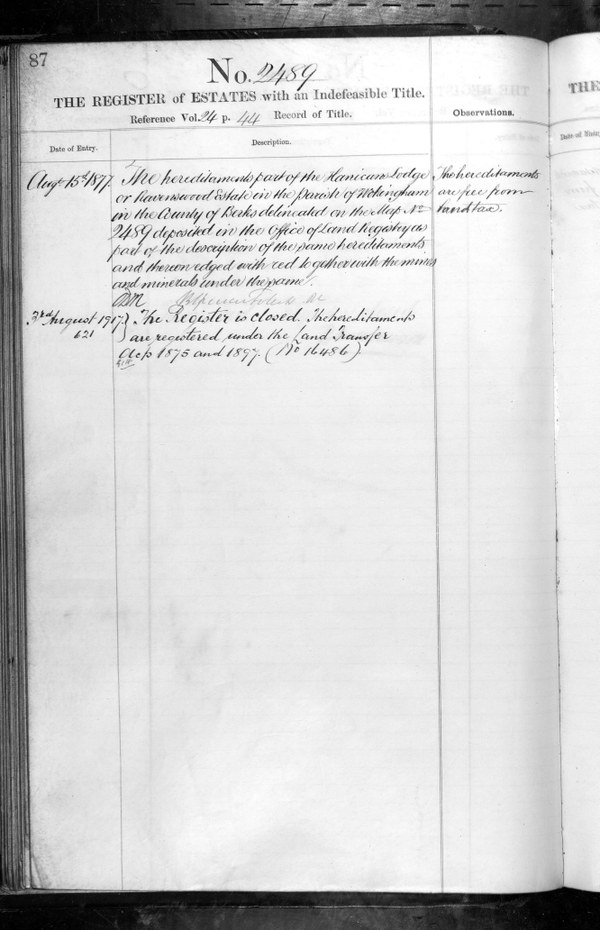 87
No. 2489
THE REGISTER of ESTATES with an Indefeasible Title.
Reference Vol. 24 p. 44 Record of Title.
Observations.
Date of Entry.
Description.
Augt 15th 1877.
The hereditaments part of the Lodge
or Ravenswood Estate in the Parish of Wokingham
in the County of Berks delineated on the Map No
2489 deposited in the Office of Land Registry as
part of the description of the same hereditaments
and thereon edged with red together with the mines
and minerals under the same.
The hereditaments
are free from
land tax.
3rd August 1917.
621
The Register is closed. The hereditaments
are registered under the Land Transfer
Acts 1875 and 1897. (No 16486)
THE